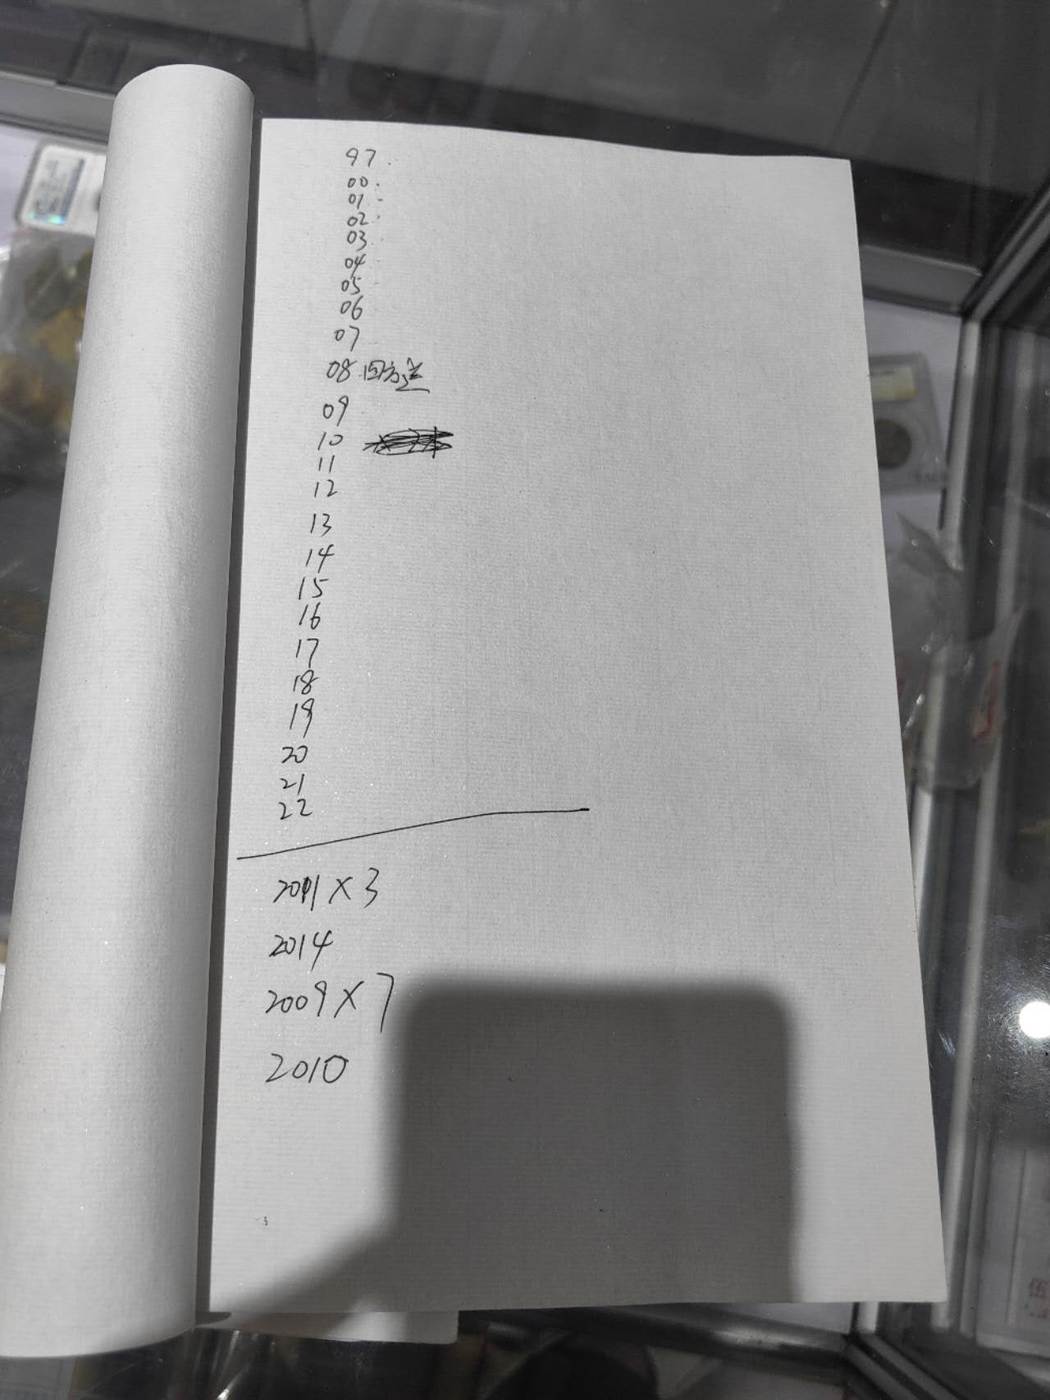 97.
00.
01.
02.
03.
04
05
06
07
08
09
10
11
12
13
14
15
16
17
18
19
20
21
22
2011 X 3
2014
2009 X 7
2010
伍